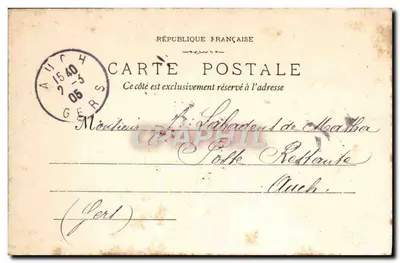 RÉPUBLIQUE FRANÇAISE
CARTE POSTALE
Ce côté est exclusivement réservé à l'adresse
AUCH
15 40
2 -3
05
GERS
Monsieur de
CHAPITRE
Poste Restante
Auch.
(Gers)